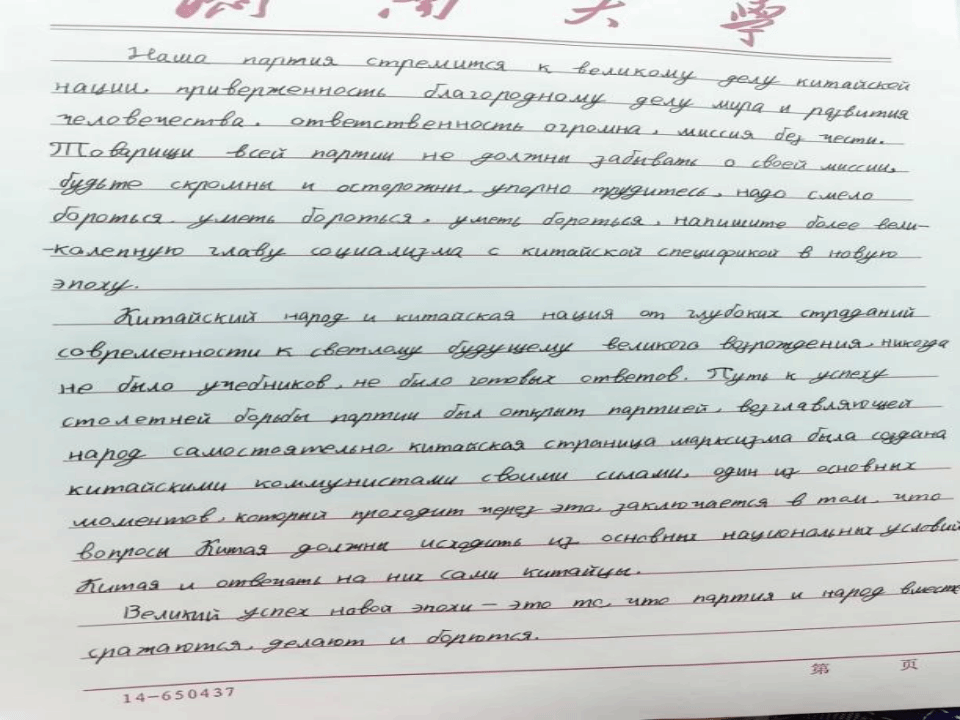 南大学
Наша партия стремится к великому делу китайской
нации, приверженность благородному делу мира и развития
человечества, ответственность огромна, миссия без чести.
Товарищи всей партии не должны забывать о своей миссии,
будьте скромны и осторожны, упорно трудитесь, надо смело
бороться, уметь бороться, уметь бороться, напишите более вели-
-колепную главу социализма с китайской спецификой в новую
эпоху.
Китайский народ и китайская нация от глубоких страданий
современности к светлому будущему великого возрождения, никогда
не было учебников, не было готовых ответов. Путь к успеху
столетней борьбы партии был открыт партией, возглавляющей
народ самостоятельно, китайская страница марксизма была создана
китайскими коммунистами своими силами, один из основных
моментов, который проходит через это, заключается в том, что
вопросы Китая должны исходить из основных национальных условий
Китая и отвечать на них сами китайцы.
Великий успех новой эпохи — это то, что партия и народ вместе
сражаются, делают и борются.
14-650437
第 页